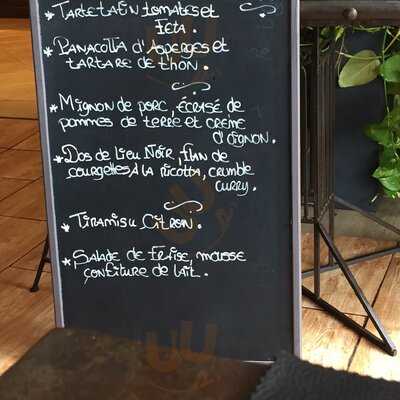 * Tarte tatin tomates et
Feta.
* Panacotta d'Asperges et
tartare de thon.
* Mignon de porc, écrasé de
pommes de terre et crème
d'oignon.
* Dos de Lieu Noir, flan de
courgettes à la Ricotta, crumble
curry.
* Tiramisu Citron.
* Salade de fraise, mousse
confiture de lait.